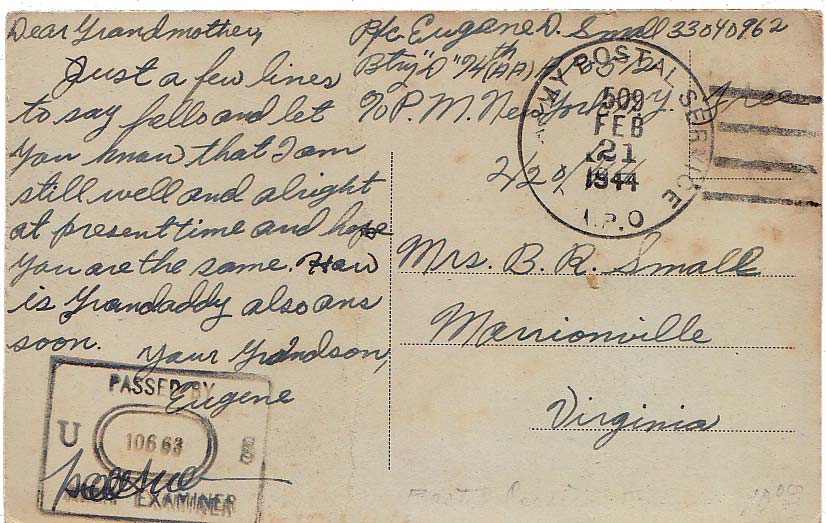 Dear Grandmother,
Just a few lines
to say hello and let
you know that I am
still well and alright
at present time and hope
you are the same. How
is Grandaddy also ans
soon.
Your Grandson,
Eugene
Pfc. Eugene D. Small 33040962
Btry "D" 74th (AA)
P.M. New York N.Y. Free
ARMY POSTAL SERVICE
509
FEB
21
1944
A.P.O
Mrs. B. R. Small
Marrionville
Virginia
PASSED BY
U S
10663
EXAMINER